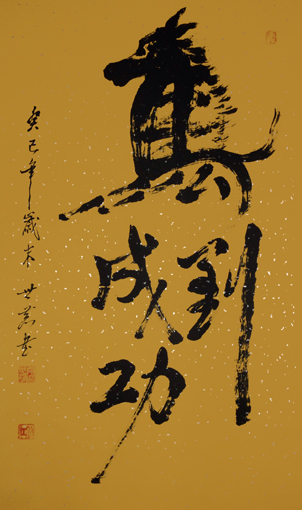 馬到
成功
癸巳年歲末世書